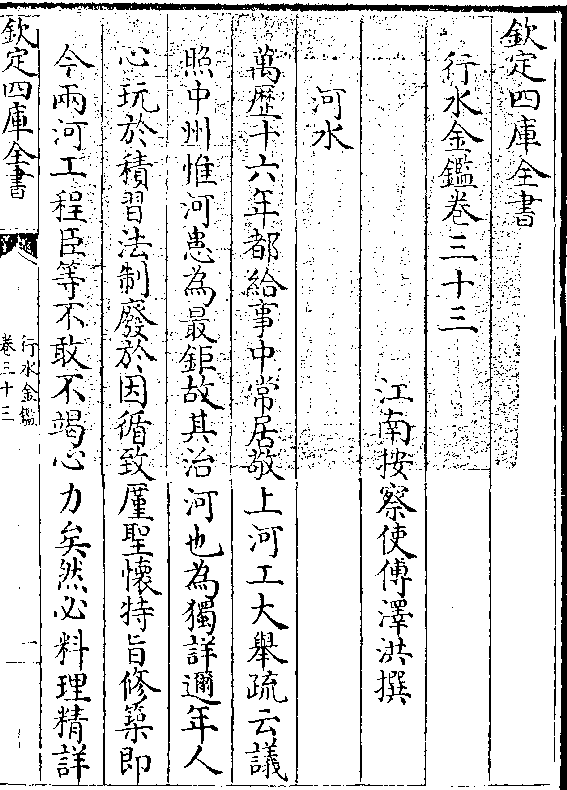 欽定四庫全書
行水金鑑卷三十三
江南按察使傅澤洪撰
河水
萬歷十六年都給事中常居敬上河工大舉疏云議
照中州惟河患為最鉅故其治河也為獨詳邇年人
心玩於積習法制廢於因循致厪聖懷特旨修築即
今兩河工程臣等不敢不竭心力矣然必料理精詳
欽定四庫全書
行水金鑑
卷三十三
一